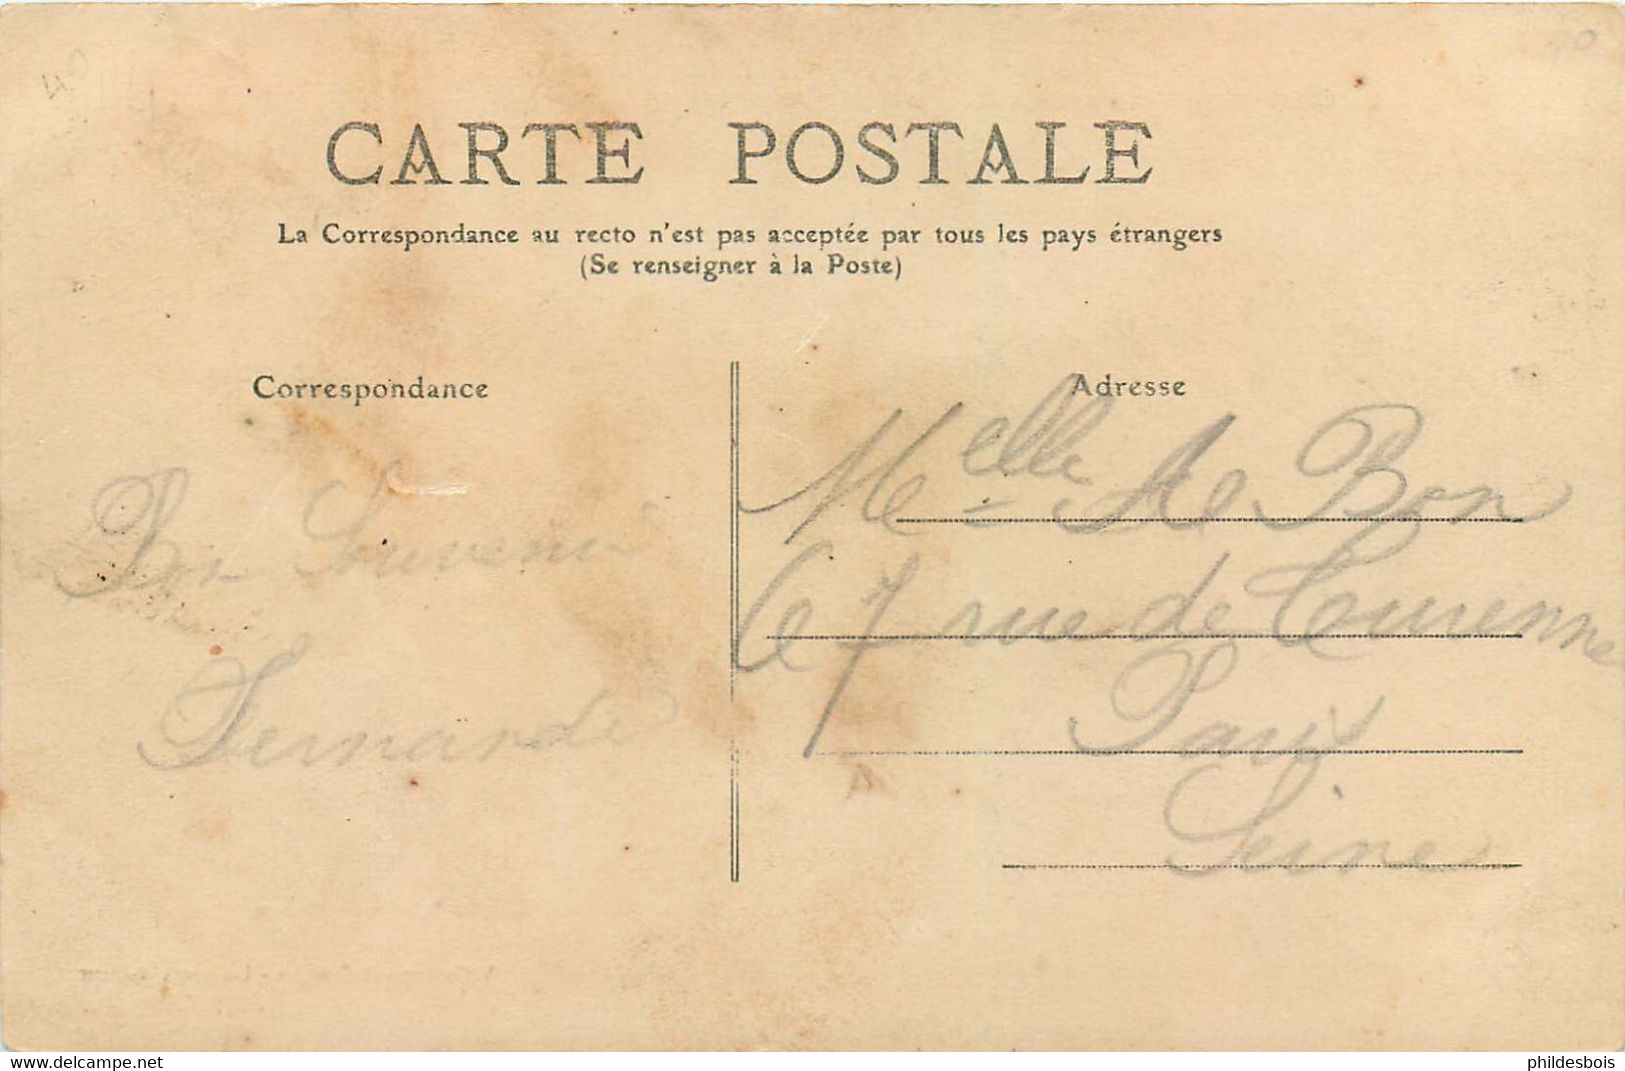 40
CARTE POSTALE
La Correspondance au recto n'est pas acceptée par tous les pays étrangers
(Se renseigner à la Poste)
Correspondance
Bon Souvenir
Fernande
Adresse
Melle Le Bon
67 rue de Turenne
Paris
Seine
www.delcampe.net
phildesbois